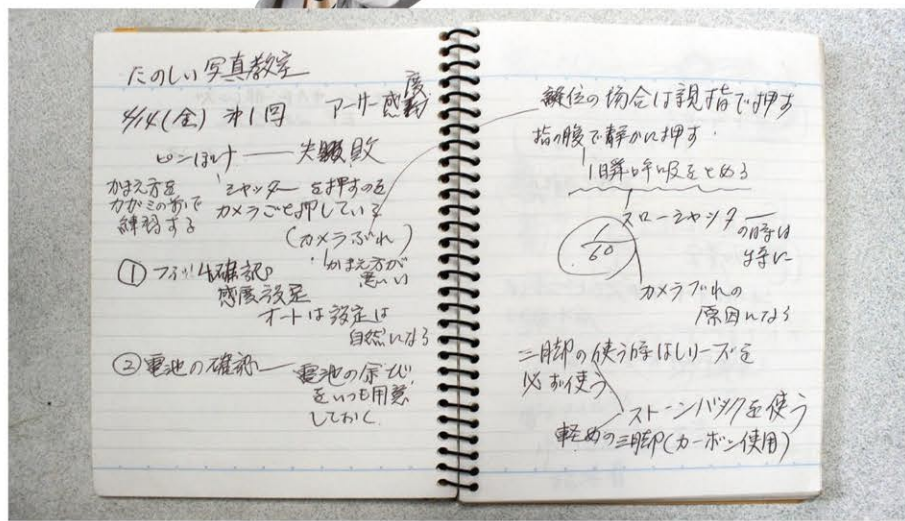 たのしい写真教室
4/14(金) 第1回
アーサー感度
ピンぼけ ── 失敗
かまえ方を
カガミの前で
練習する
シャッターを押すのを
カメラごと押している
(カメラぶれ)
かまえ方が
悪い
① フィルム確認
感度設定
オートは設定は
自然になる
② 電池の確認 ── 電池の余び
をいつも用意
しておく
縦位の場合は親指で押す
指の腹で静かに押す
1瞬呼吸をとめる
スローシャッター
の時は
特に
1/60
カメラブれの
原因になる
三脚の使う時はレリーズを
必ず使う
ストーンバックを使う
軽めの三脚(カーボン使用)